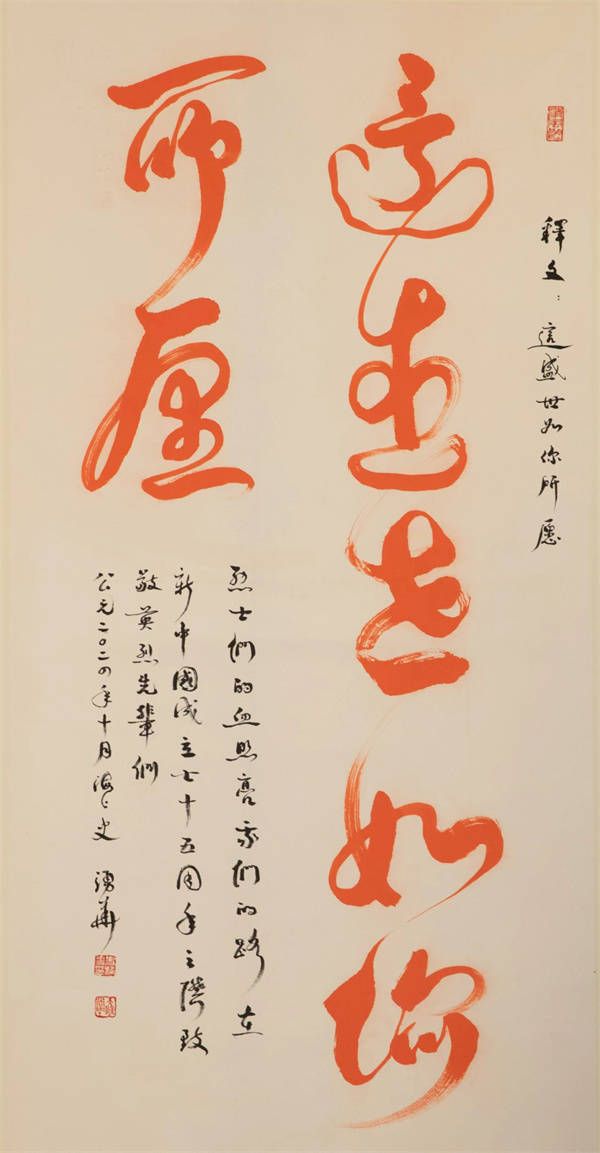 釋文：這盛世如你所愿
這盛世如你
所愿
烈士們的血照亮我們的路在
新中國成立七十五周年之際致
敬英烈先輩們
公元二〇二四年十月海上史華